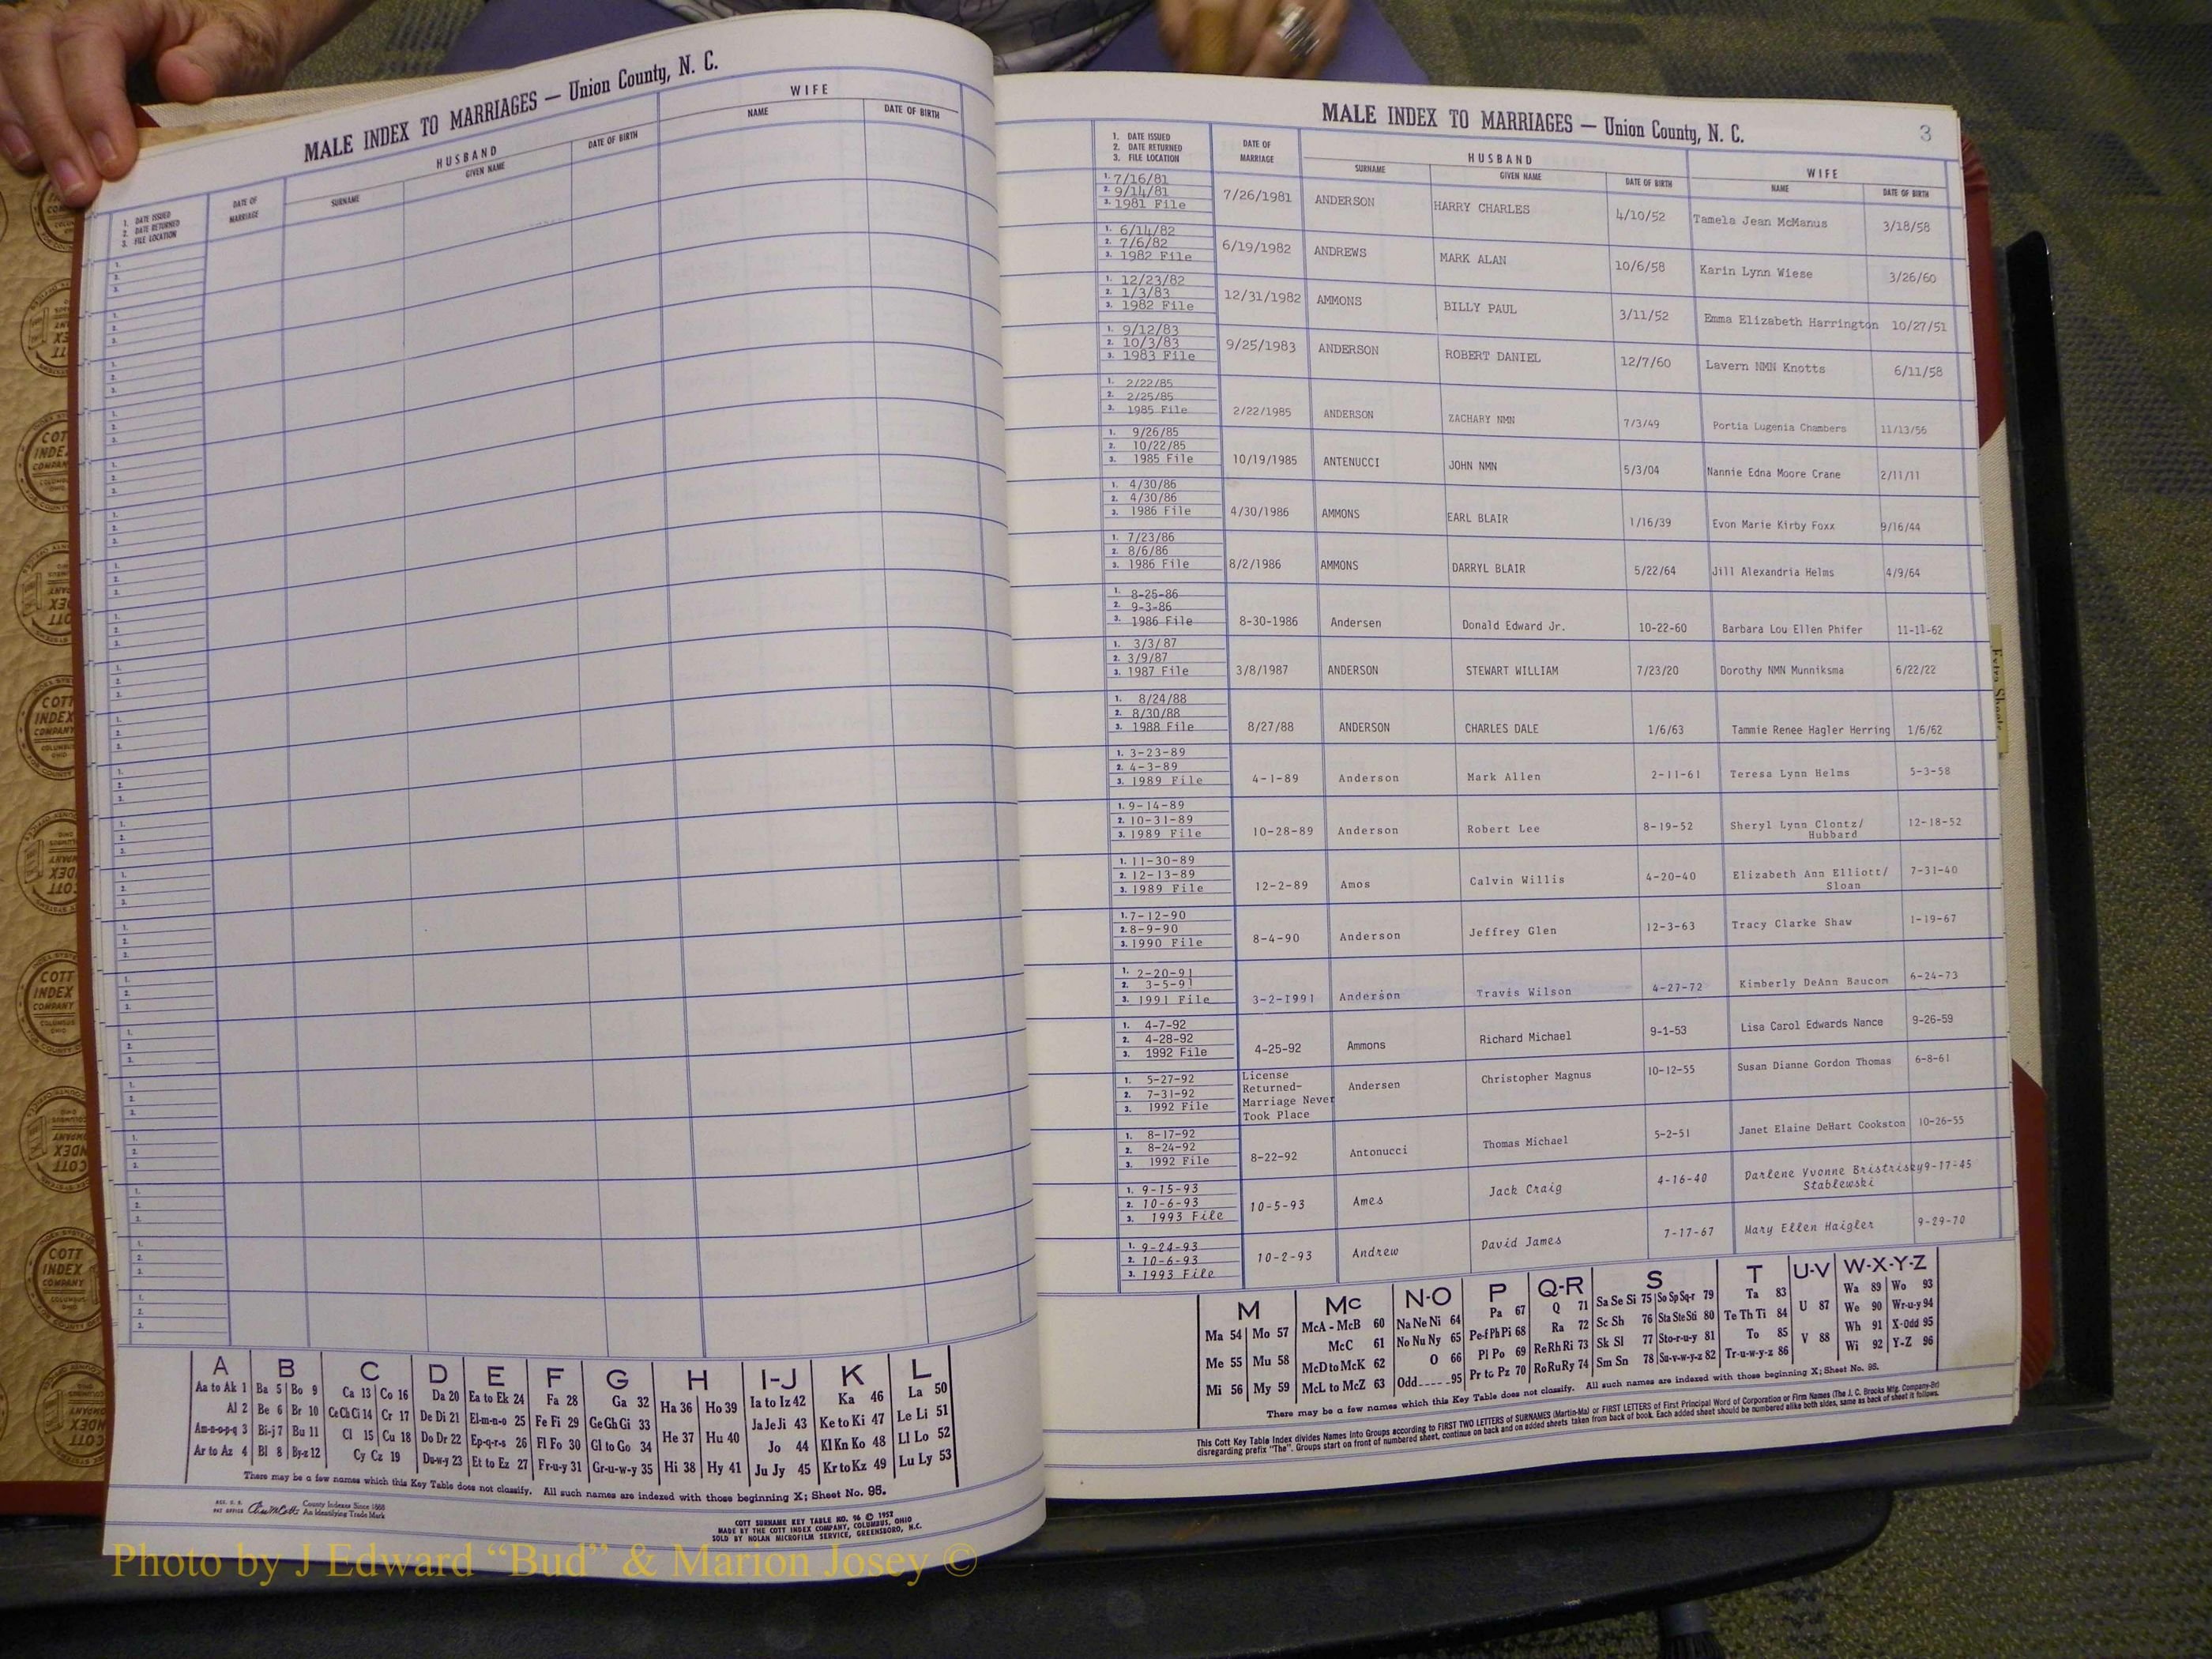 MALE INDEX TO MARRIAGES — Union County, N. C.
HUSBAND
WIFE
1. DATE ISSUED
2. DATE RETURNED
3. FILE LOCATION
DATE OF MARRIAGE
SURNAME
GIVEN NAME
DATE OF BIRTH
NAME
DATE OF BIRTH
A B C D E F G H I-J K L
Aa to Ak 1 Ba 5 Bo 9 Ca 13 Co 16 Da 20 Ea to Ek 24 Fa 28 Ga 32 Ha 36 Ho 39 Ia to Iz 42 Ka 46 La 50
Al 2 Be 6 Br 10 Ce Ch Ci 14 Cr 17 De Di 21 El-m-n-o 25 Fe Fi 29 Ge Gh Gi 33 He 37 Hu 40 Ja Je Ji 43 Ke to Ki 47 Le Li 51
Am-n-o-p-q 3 Bi-j 7 Bu 11 Cl 15 Cu 18 Do Dr 22 Ep-q-r-s 26 Fl Fo 30 Gl to Go 34 Hi 38 Hy 41 Jo 44 Kl Kn Ko 48 Ll Lo 52
Ar to Az 4 Bl 8 By-z 12 Cy Cz 19 Du-w-y 23 Et to Ez 27 Fr-u-y 31 Gr-u-w-y 35 Ju Jy 45 Kr to Kz 49 Lu Ly 53
There may be a few names which this Key Table does not classify. All such names are indexed with those beginning X; Sheet No. 95.
REG. U. S. PAT OFFICE
County Indexes Since 1888
An Identifying Trade Mark
COTT SURNAME KEY TABLE NO. 96 © 1952
MADE BY THE COTT INDEX COMPANY, COLUMBUS, OHIO
SOLD BY NOLAN MICROFILM SERVICE, GREENSBORO, N.C.
MALE INDEX TO MARRIAGES — Union County, N. C.
3
1. DATE ISSUED
2. DATE RETURNED
3. FILE LOCATION
DATE OF MARRIAGE
HUSBAND
SURNAME
GIVEN NAME
DATE OF BIRTH
WIFE
NAME
DATE OF BIRTH
1. 7/16/81
2. 9/14/81
3. 1981 File 7/26/1981 ANDERSON HARRY CHARLES 4/10/52 Tamela Jean McManus 3/18/58
1. 6/14/82
2. 7/6/82
3. 1982 File 6/19/1982 ANDREWS MARK ALAN 10/6/58 Karin Lynn Wiese 3/26/60
1. 12/23/82
2. 1/3/83
3. 1982 File 12/31/1982 AMMONS BILLY PAUL 3/11/52 Emma Elizabeth Harrington 10/27/51
1. 9/12/83
2. 10/3/83
3. 1983 File 9/25/1983 ANDERSON ROBERT DANIEL 12/7/60 Lavern NMN Knotts 6/11/58
1. 2/22/85
2. 2/25/85
3. 1985 File 2/22/1985 ANDERSON ZACHARY NMN 7/3/49 Portia Lugenia Chambers 11/13/56
1. 9/26/85
2. 10/22/85
3. 1985 File 10/19/1985 ANTENUCCI JOHN NMN 5/3/04 Nannie Edna Moore Crane 2/11/11
1. 4/30/86
2. 4/30/86
3. 1986 File 4/30/1986 AMMONS EARL BLAIR 1/16/39 Evon Marie Kirby Foxx 9/16/44
1. 7/23/86
2. 8/6/86
3. 1986 File 8/2/1986 AMMONS DARRYL BLAIR 5/22/64 Jill Alexandria Helms 4/9/64
1. 8-25-86
2. 9-3-86
3. 1986 File 8-30-1986 Andersen Donald Edward Jr. 10-22-60 Barbara Lou Ellen Phifer 11-11-62
1. 3/3/87
2. 3/9/87
3. 1987 File 3/8/1987 ANDERSON STEWART WILLIAM 7/23/20 Dorothy NMN Munniksma 6/22/22
1. 8/24/88
2. 8/30/88
3. 1988 File 8/27/88 ANDERSON CHARLES DALE 1/6/63 Tammie Renee Hagler Herring 1/6/62
1. 3-23-89
2. 4-3-89
3. 1989 File 4-1-89 Anderson Mark Allen 2-11-61 Teresa Lynn Helms 5-3-58
1. 9-14-89
2. 10-31-89
3. 1989 File 10-28-89 Anderson Robert Lee 8-19-52 Sheryl Lynn Clontz/ 12-18-52
Hubbard
1. 11-30-89
2. 12-13-89
3. 1989 File 12-2-89 Amos Calvin Willis 4-20-40 Elizabeth Ann Elliott/ 7-31-40
Sloan
1. 7-12-90
2. 8-9-90
3. 1990 File 8-4-90 Anderson Jeffrey Glen 12-3-63 Tracy Clarke Shaw 1-19-67
1. 2-20-91
2. 3-5-91
3. 1991 File 3-2-1991 Anderson Travis Wilson 4-27-72 Kimberly DeAnn Baucom 6-24-73
1. 4-7-92
2. 4-28-92
3. 1992 File 4-25-92 Ammons Richard Michael 9-1-53 Lisa Carol Edwards Nance 9-26-59
1. 5-27-92
2. 7-31-92
3. 1992 File License Returned- Marriage Never Took Place Andersen Christopher Magnus 10-12-55 Susan Dianne Gordon Thomas 6-8-61
1. 8-17-92
2. 8-24-92
3. 1992 File 8-22-92 Antonucci Thomas Michael 5-2-51 Janet Elaine DeHart Cookston 10-26-55
1. 9-15-93
2. 10-6-93
3. 1993 File 10-5-93 Ames Jack Craig 4-16-40 Darlene Yvonne Bristrisky 9-17-45
Stablewski
1. 9-24-93
2. 10-6-93
3. 1993 File 10-2-93 Andrew David James 7-17-67 Mary Ellen Haigler 9-29-70
M Mc N-O P Q-R S T U-V W-X-Y-Z
Ma 54 Mo 57 McA - McB 60 Na Ne Ni 64 Pa 67 Q 71 Sa Se Si 75 So Sp Sq-r 79 Ta 83 U 87 Wa 89 Wo 93
Me 55 Mu 58 McC 61 No Nu Ny 65 Pe-f Ph Pi 68 Ra 72 Sc Sh 76 Sta Ste Sti 80 Te Th Ti 84 V 88 We 90 Wr-u-y 94
Mi 56 My 59 McD to McK 62 O 66 Pl Po 69 Re Rh Ri 73 Sk Sl 77 Sto-r-u-y 81 To 85 Wh 91 X-Odd 95
McL to McZ 63 Odd 95 Pr to Pz 70 Ro Ru Ry 74 Sm Sn 78 Su-v-w-y-z 82 Tr-u-w-y-z 86 Wi 92 Y-Z 96
There may be a few names which this Key Table does not classify. All such names are indexed with those beginning X; Sheet No. 95.
This Cott Key Table Index divides Names into Groups according to FIRST TWO LETTERS of SURNAMES (Martin-Ma) or FIRST LETTERS of First Principal Word of Corporation or Firm Names (The J. C. Brooks Mfg. Company-Br)
disregarding prefix "The". Groups start on front of numbered sheet, continue on back and on added sheets taken from back of book. Each added sheet should be numbered alike both sides, same as back of sheet it follows.
COTT INDEX COMPANY COLUMBUS OHIO
Photo by J Edward “Bud” & Marion Josey ©